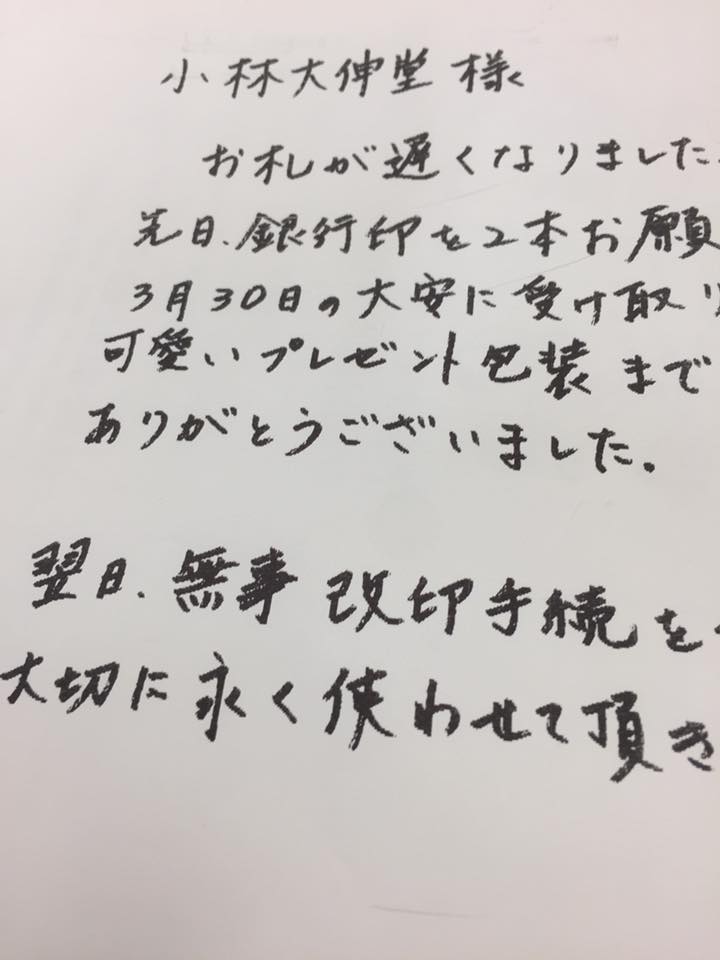 小林大伸堂 様
お札が遅くなりました
先日、銀行印を2本お願
3月30日の大安に受け取り
可愛いプレゼント包装まで
ありがとうございました。
翌日、無事 改印手続を
大切に永く使わせて頂き